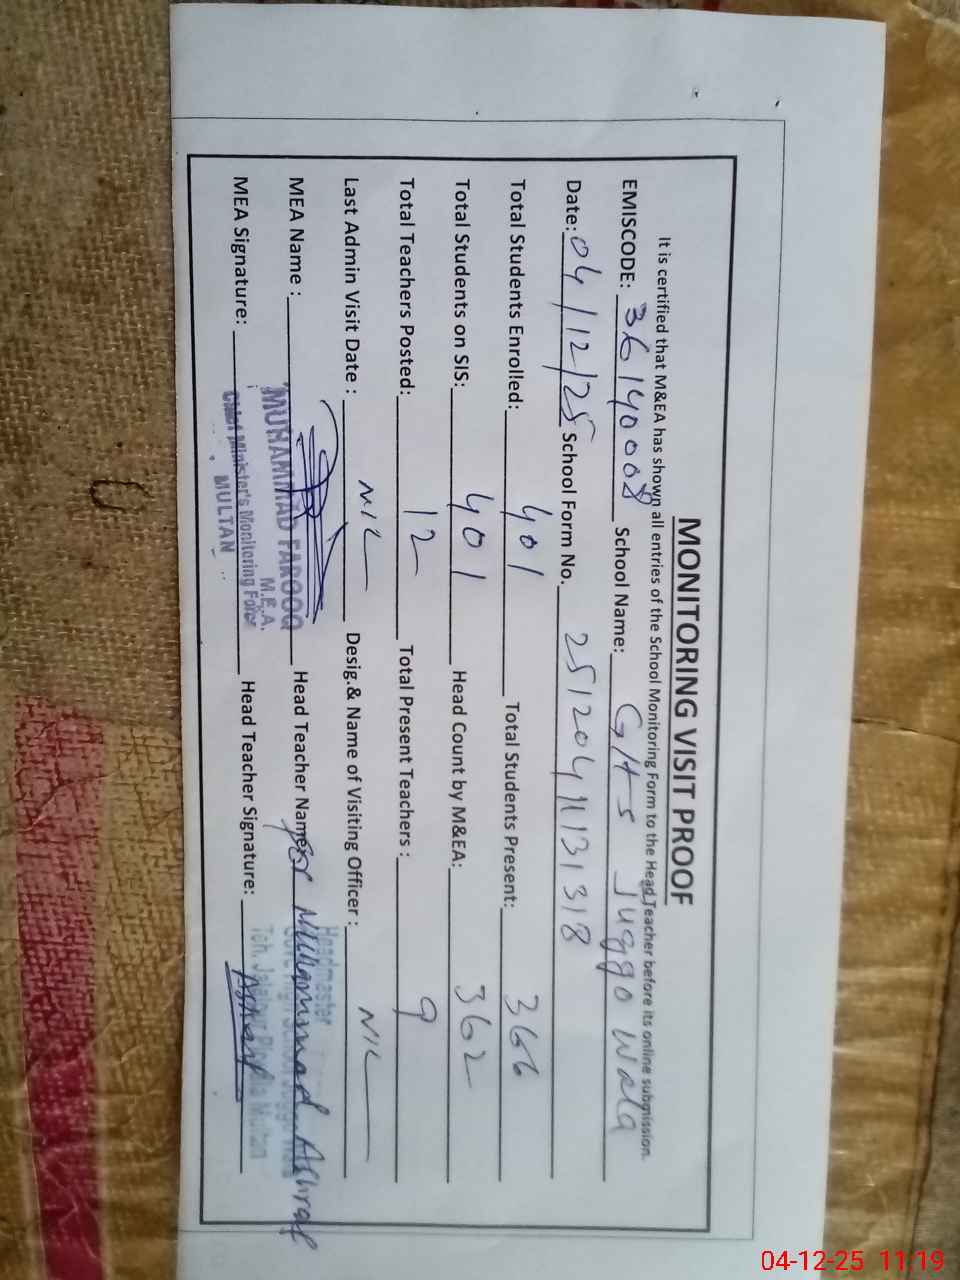 MONITORING VISIT PROOF
It is certified that M&EA has shown all entries of the School Monitoring Form to the Head Teacher before its online submission.
EMISCODE: 36140008 School Name: GHS Juggo Wala
Date: 04/12/25 School Form No. 251204113131318
Total Students Enrolled: 401 Total Students Present: 366
Total Students on SIS: 401 Head Count by M&EA: 362
Total Teachers Posted: 12 Total Present Teachers : 9
Last Admin Visit Date : NIL Desig.& Name of Visiting Officer : NIL
MEA Name : MUHAMMAD FAROOQ Head Teacher Name: Muhammad Ashraf
M.E.A.
Chief Minister's Monitoring Force
MULTAN
Headmaster
Teh. Jalalpur Pirwala Multan
MEA Signature: Head Teacher Signature: Ashraf
04-12-25 11:19